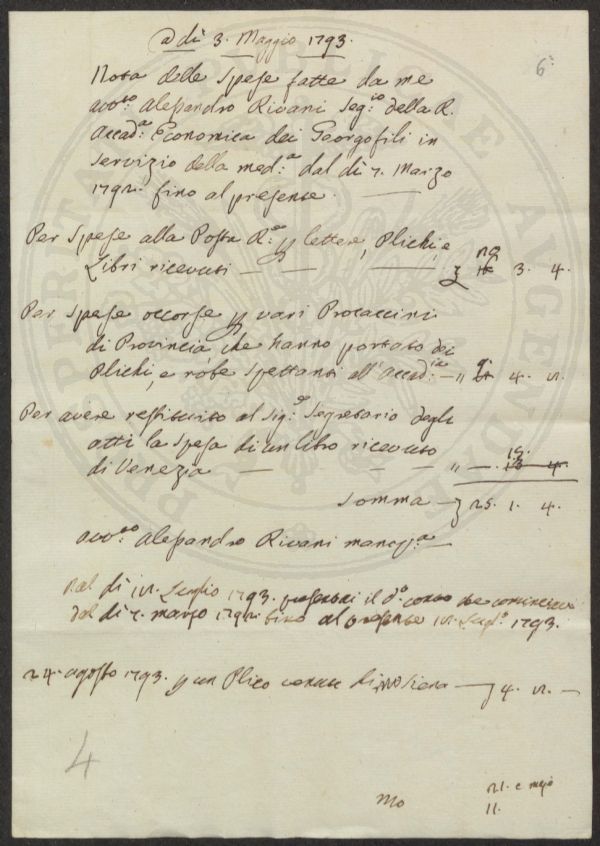 a dì 3. Maggio 1793.
6
Nota delle Spese fatte da me
avv:to Alessandro Rivani Seg:rio della R.
Accad:a Economica dei Georgofili in
servizio della med:a dal dì 7. Marzo
1792. fino al presente.
Per Spese alla Posta R:a p lettere, Plichi, e
Libri ricevuti 3. 4.
Per Spese occorse p vari Procaccini
di Provincia, che hanno portato dei
Plichi, e robe spettanti all'Accad:ia 4.
Per avere restituito al Sig:e Segretario degli
atti la spesa di un libro ricevuto
di Venezia
Somma 25. 1. 4.
avv:to Alessandro Rivani
Dal dì Luglio 1793. presentai il d:o conto che cominciava
dal dì 7. marzo 1792. fino al presente 1793.
24. agosto 1793. p un Plico Siena 4.
4
21. e mezo
11.